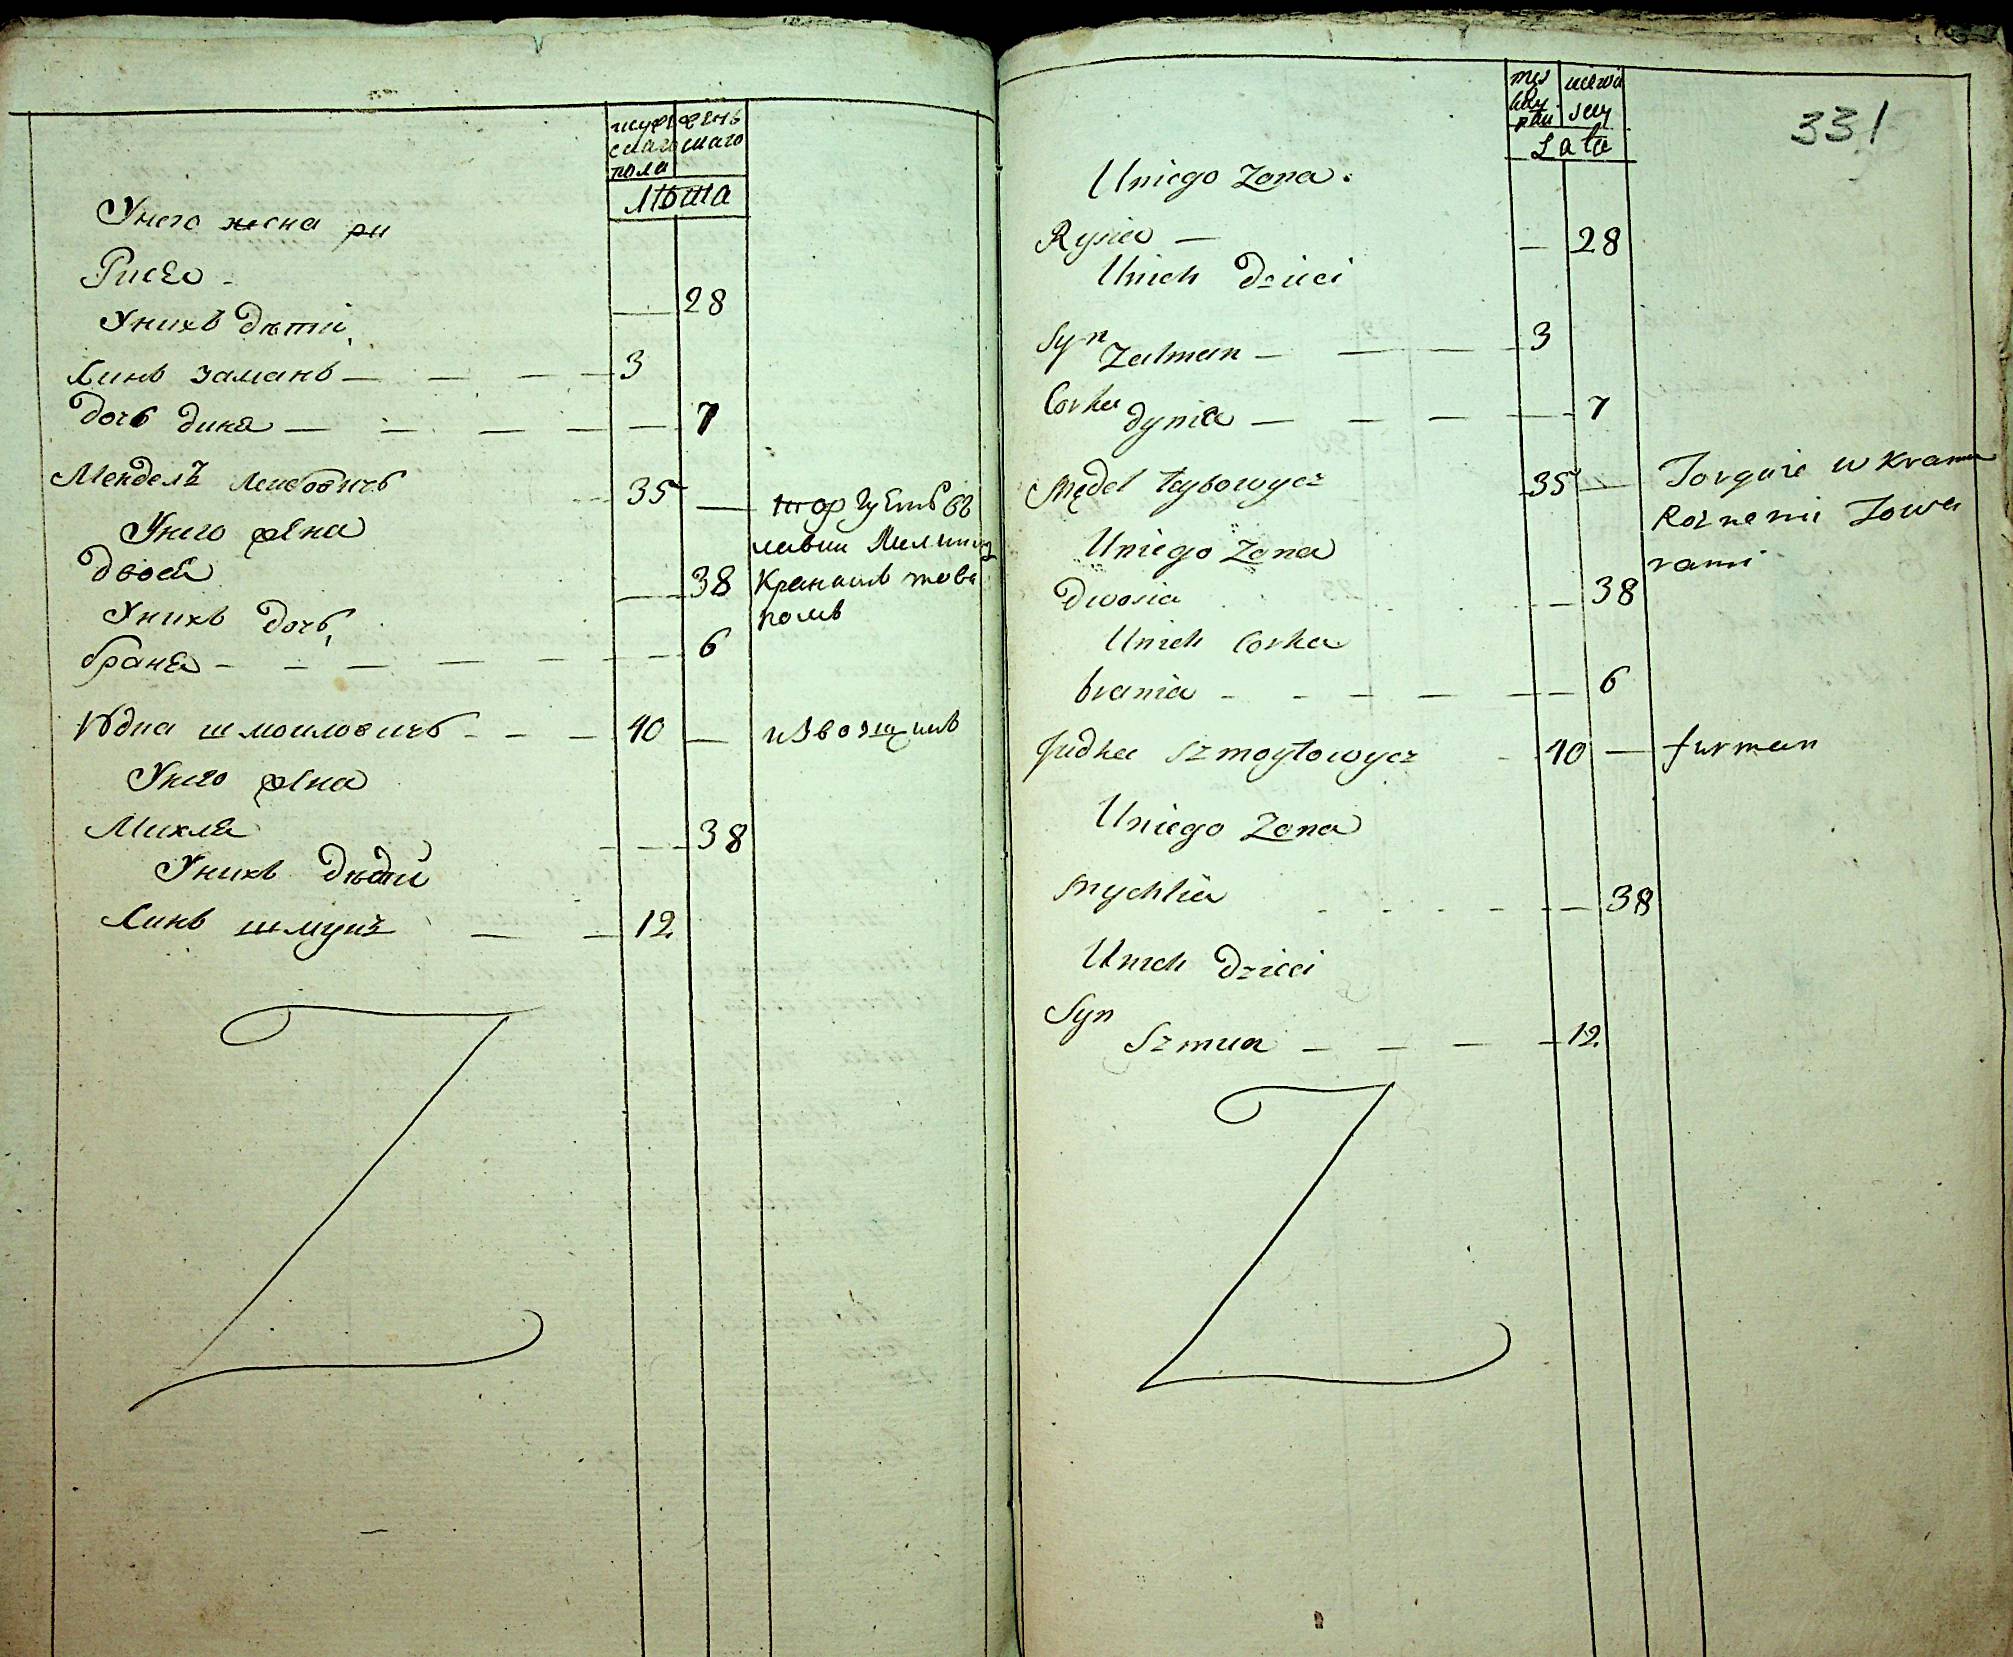 мужескаго пола женьскаго
Лѣта
Унего жена ри
Рися -
28
Унихъ дѣти
Синъ заманъ — 3
дочь диня — 7
Мендель Леибовичъ 35 — торгуетъ въ
лавки
Унего жена
двося 38 товаромъ
Унихъ дочь
браня — 6
Юдка шмоиловичъ - 40 — извозщикъ
Унего жена
Михля 38
Унихъ дѣти
Синъ шмуня — 12
331
Lata
Uniego Zona.
Rysia — — 28
Unich dzieci
Syn Zalman — 3
Corka dynia — 7
Mędel Łeybowycz 35 — Torguie w Kramu
Roznemi Towa
rami
Uniego Zona
Dwosia — 38
Unich Corka
brania - 6
Judka Szmoyłowycz - 40 — furman
Uniego Zona
Mychlia — 38
Unich dzieci
Syn
Szmua — 12